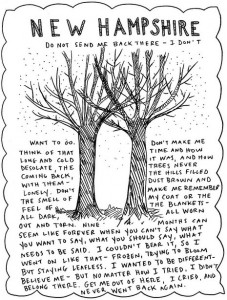 NEW HAMPSHIRE
DO NOT SEND ME BACK THERE – I DON'T
WANT TO GO.
THINK OF THAT
LONG AND COLD
DESOLATE, THE
COMING BACK,
WITH THEM –
LONELY. DON'T
THE SMELL OF
FEEL OF
ALL DARK,
OUT AND TORN. NINE
DON'T MAKE ME
TIME AND HOW
IT WAS, AND HOW
TREES NEVER
THE HILLS FILLED
DUST BROWN AND
MAKE ME REMEMBER
MY COAT OR THE
THE BLANKETS–
ALL WORN
MONTHS CAN
SEEM LIKE FOREVER WHEN YOU CAN'T SAY WHAT
YOU WANT TO SAY, WHAT YOU SHOULD SAY, WHAT
NEEDS TO BE SAID. I COULDN'T BEAR IT, SO I
WENT ON LIKE THAT – FROZEN, TRYING TO BLOOM
BUT STAYING LEAFLESS. I WANTED TO BE DIFFERENT–
BELIEVE ME – BUT NO MATTER HOW I TRIED, I DIDN'T
BELONG THERE. GET ME OUT OF HERE, I CRIED, AND
NEVER WENT BACK AGAIN.